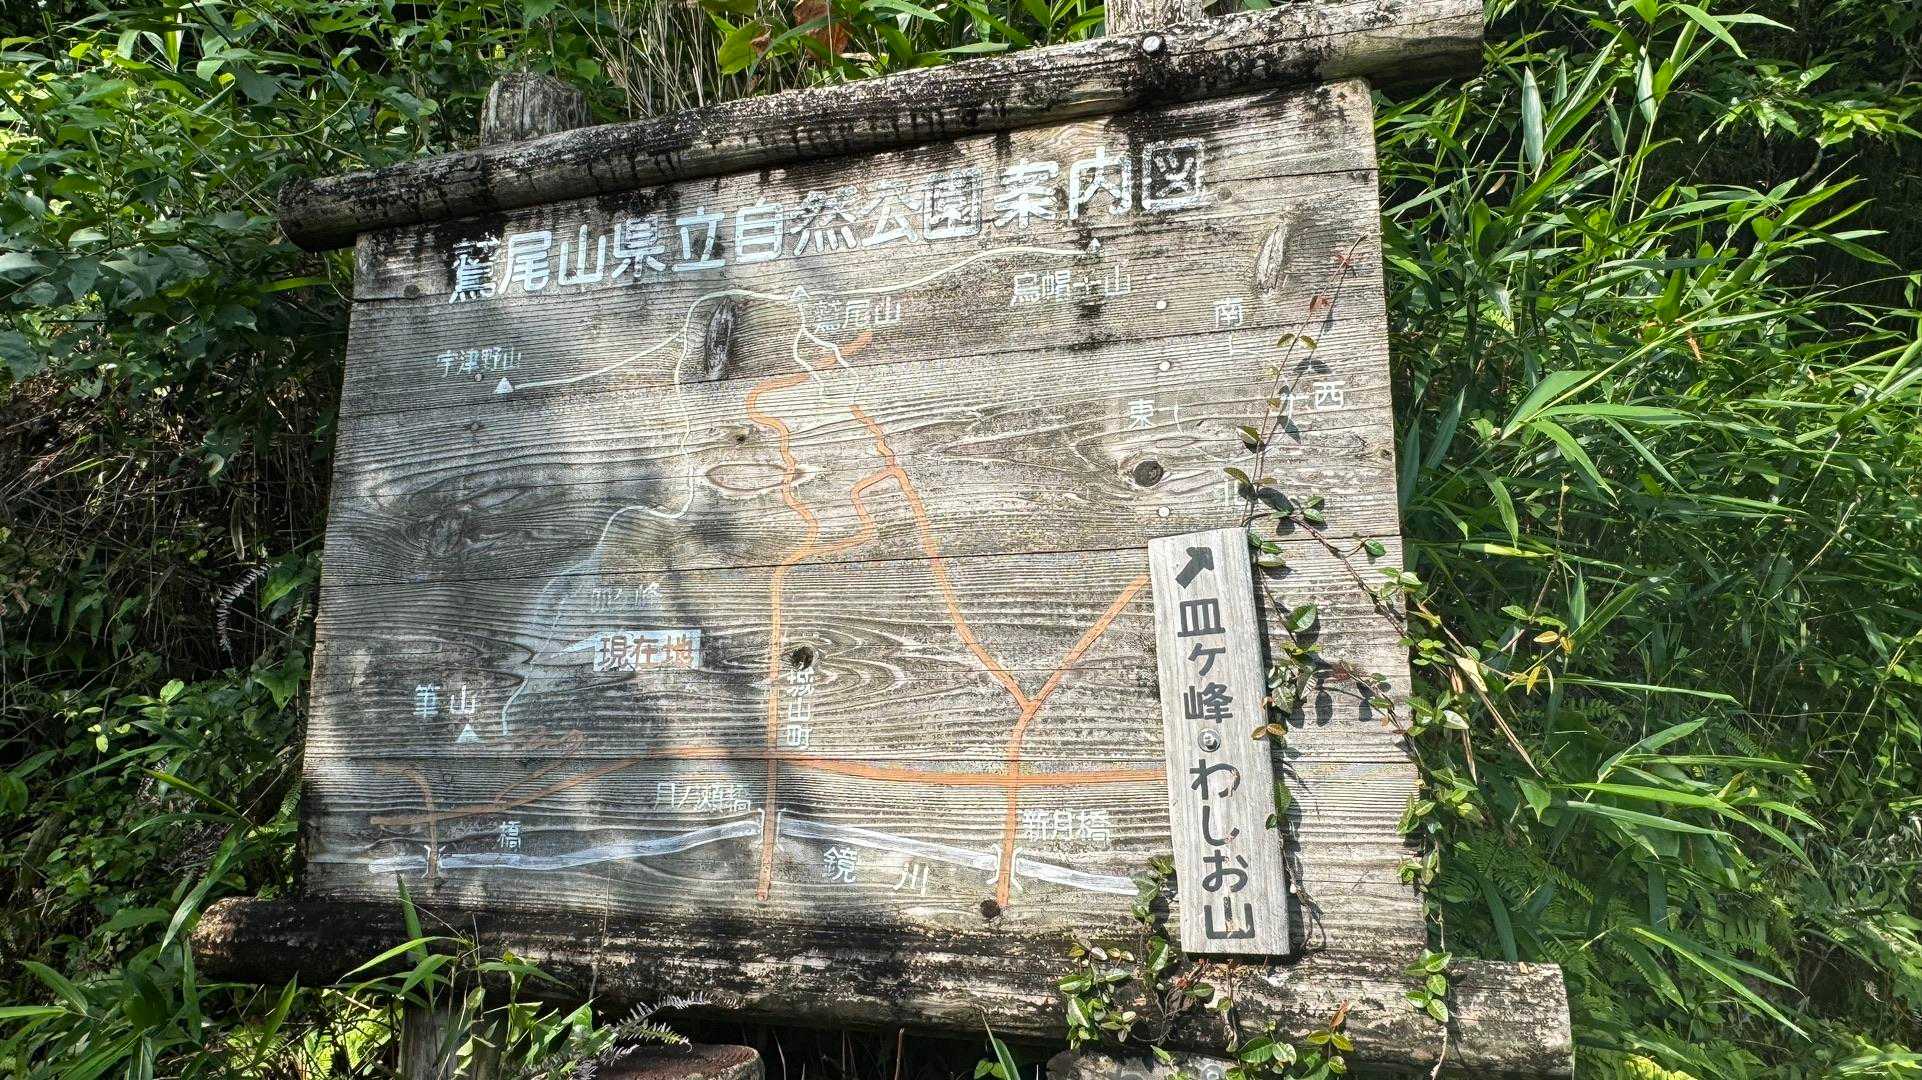 鷲尾山県立自然公園案内図
烏帽子山
鷲尾山
宇津野山
南
東
西
北
皿ヶ峰
現在地
筆山
月ノ瀬橋
新月橋
橋
鏡川
皿ヶ峰
わしお山